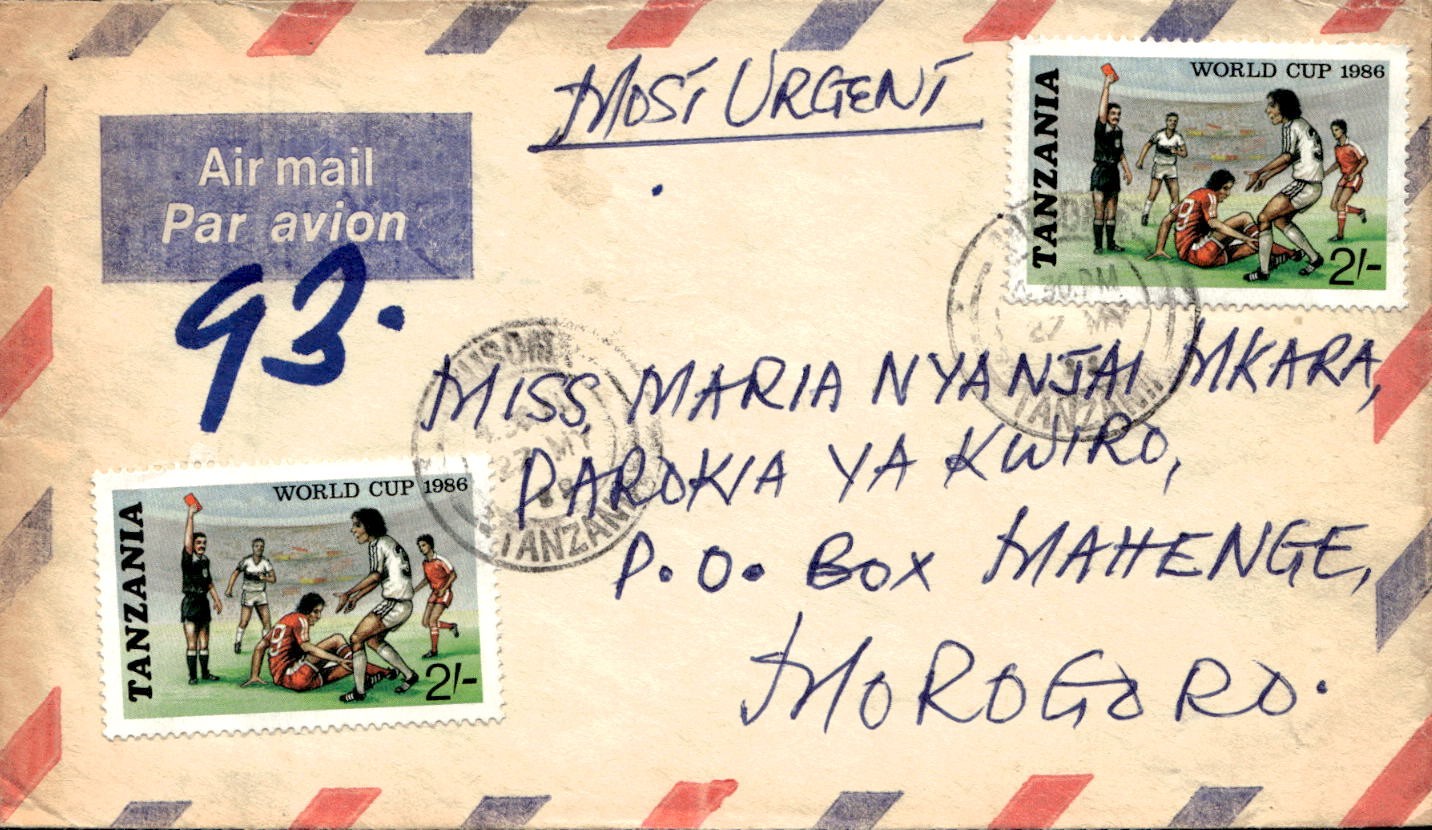 MOST URGENT
Air mail
Par avion
93.
WORLD CUP 1986
TANZANIA
2/-
MISS, MARIA NYANJAI MKARA,
PAROKIA YA KWIRO,
P.O. BOX MAHENGE,
MOROGORO.
WORLD CUP 1986
TANZANIA
9
2/-
MUSOMA
27 MY
88
TANZANIA
30 PM
27 MY
TANZANIA